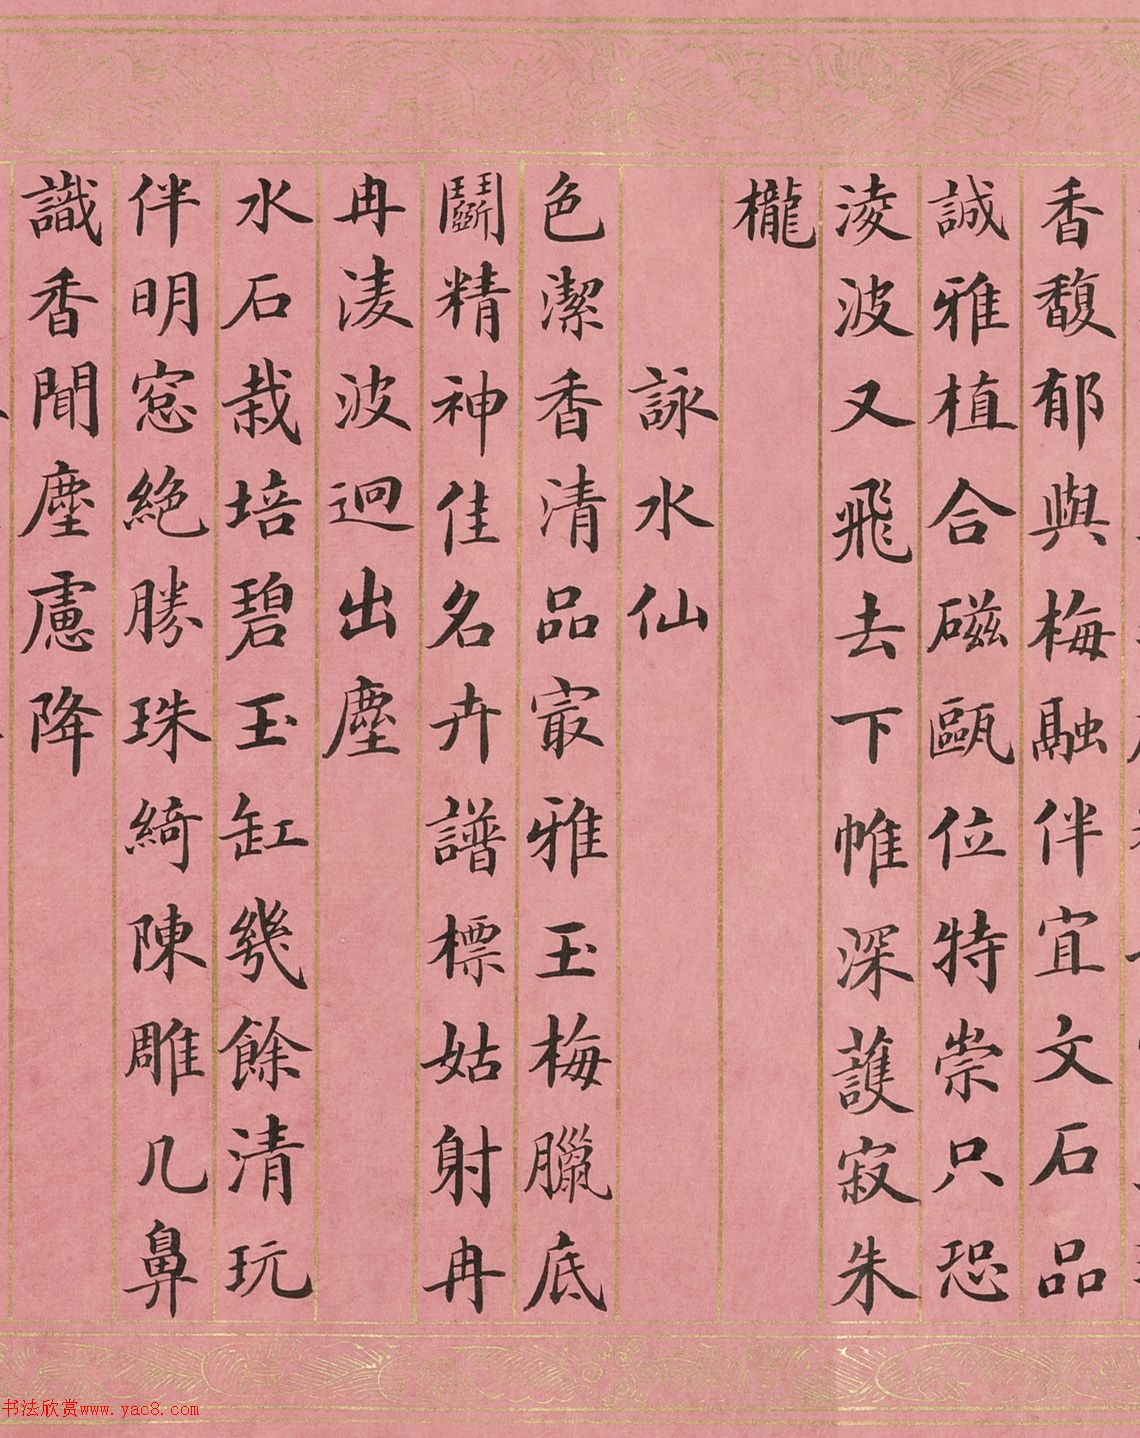 香馥郁與梅融伴宜文石品
誠雅植合磁甌位特崇只恐
淩波又飛去下帷深護寂朱
櫳
詠水仙
色潔香清品㝡雅玉梅臘底
鬭精神佳名卉譜標姑射冉
冉淩波迥出塵
水石栽培碧玉缸幾餘清玩
伴明窓絶勝珠綺陳雕几鼻
識香聞塵慮降
书法欣赏www.yac8.com